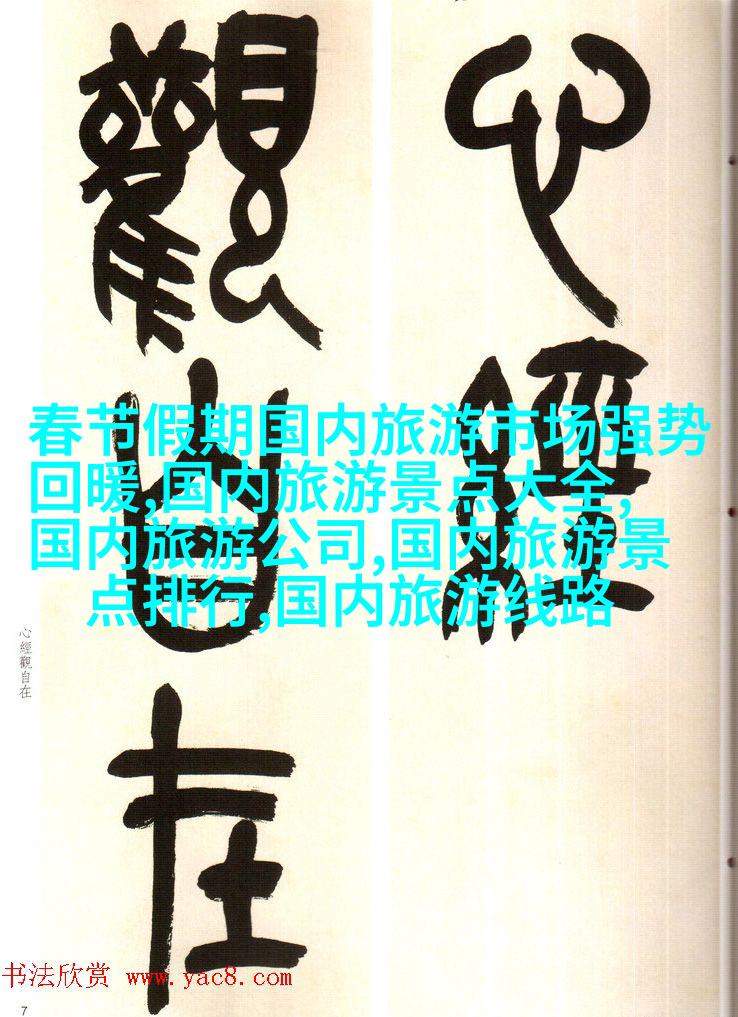 心經
觀自在
春节假期国内旅游市场强势
回暖,国内旅游景点大全,
国内旅游公司,国内旅游景
点排行,国内旅游线路
心經觀自在
书法欣赏 www.yac8.com
7